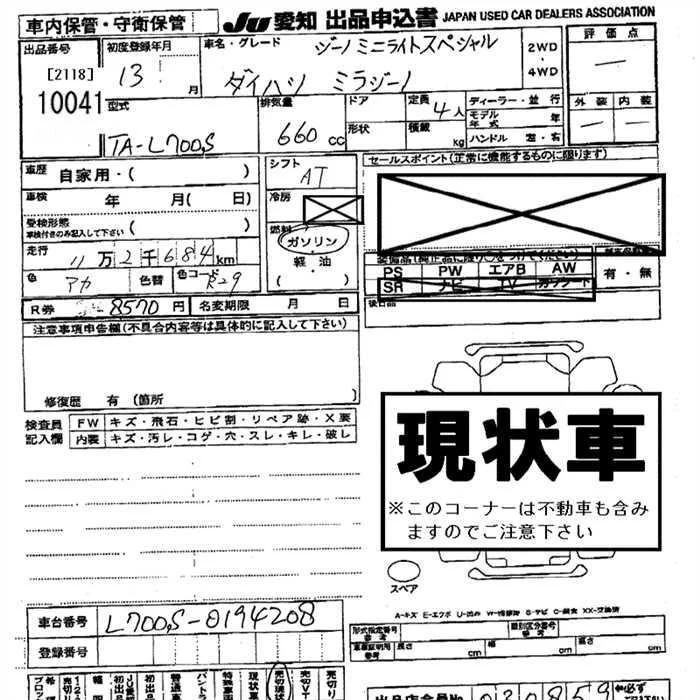 車内保管・守衛保管
JU 愛知 出品申込書 JAPAN USED CAR DEALERS ASSOCIATION
出品番号
[2118]
10041
初度登録年月
13 月
車名・グレード
ジーノ ミニライトスペシャル
ダイハツ ミラジーノ
2WD
・
4WD
評価点
外装 内装
型式
TA-L700S
排気量
660 cc
ドア
形状
定員
4人
積載
kg
ディーラー・並行
モデル
年式 年
ハンドル 左・右
車歴
自家用・( )
車検 年 月( 日)
受検形態
車検付きのみ記入して下さい
( )
走行
11万2千684km
色 アカ 色替 色コード R29
シフト
AT
冷房
燃料
ガソリン
・
軽油
( )
R券 8570円 名変期限 月 日
セールスポイント(正常に機能するものに限ります)
装備品(純正品に限り○をつけてください)
PS PW エアB AW
SR ナビ TV カワシート
有・無
後日品
注意事項申告欄(不具合内容等は具体的に記入して下さい)
修復歴 有(箇所 )
検査員
記入欄
FW キズ・飛石・ヒビ割・リペア跡・X要
内装 キズ・汚レ・コゲ・穴・スレ・キレ・破レ
現状車
※このコーナーは不動車も含み
ますのでご注意下さい
スペア
A-キズ E-エクボ U-凹み W-補修跡 S-サビ C-腐食 XX-交換済
車台番号 L700S-0194208
登録番号
形式指定番号
参考
類別区分番号
参考
車庫証明用
参考
長さ cm 幅 cm 高さ cm
出品店会員No 030859